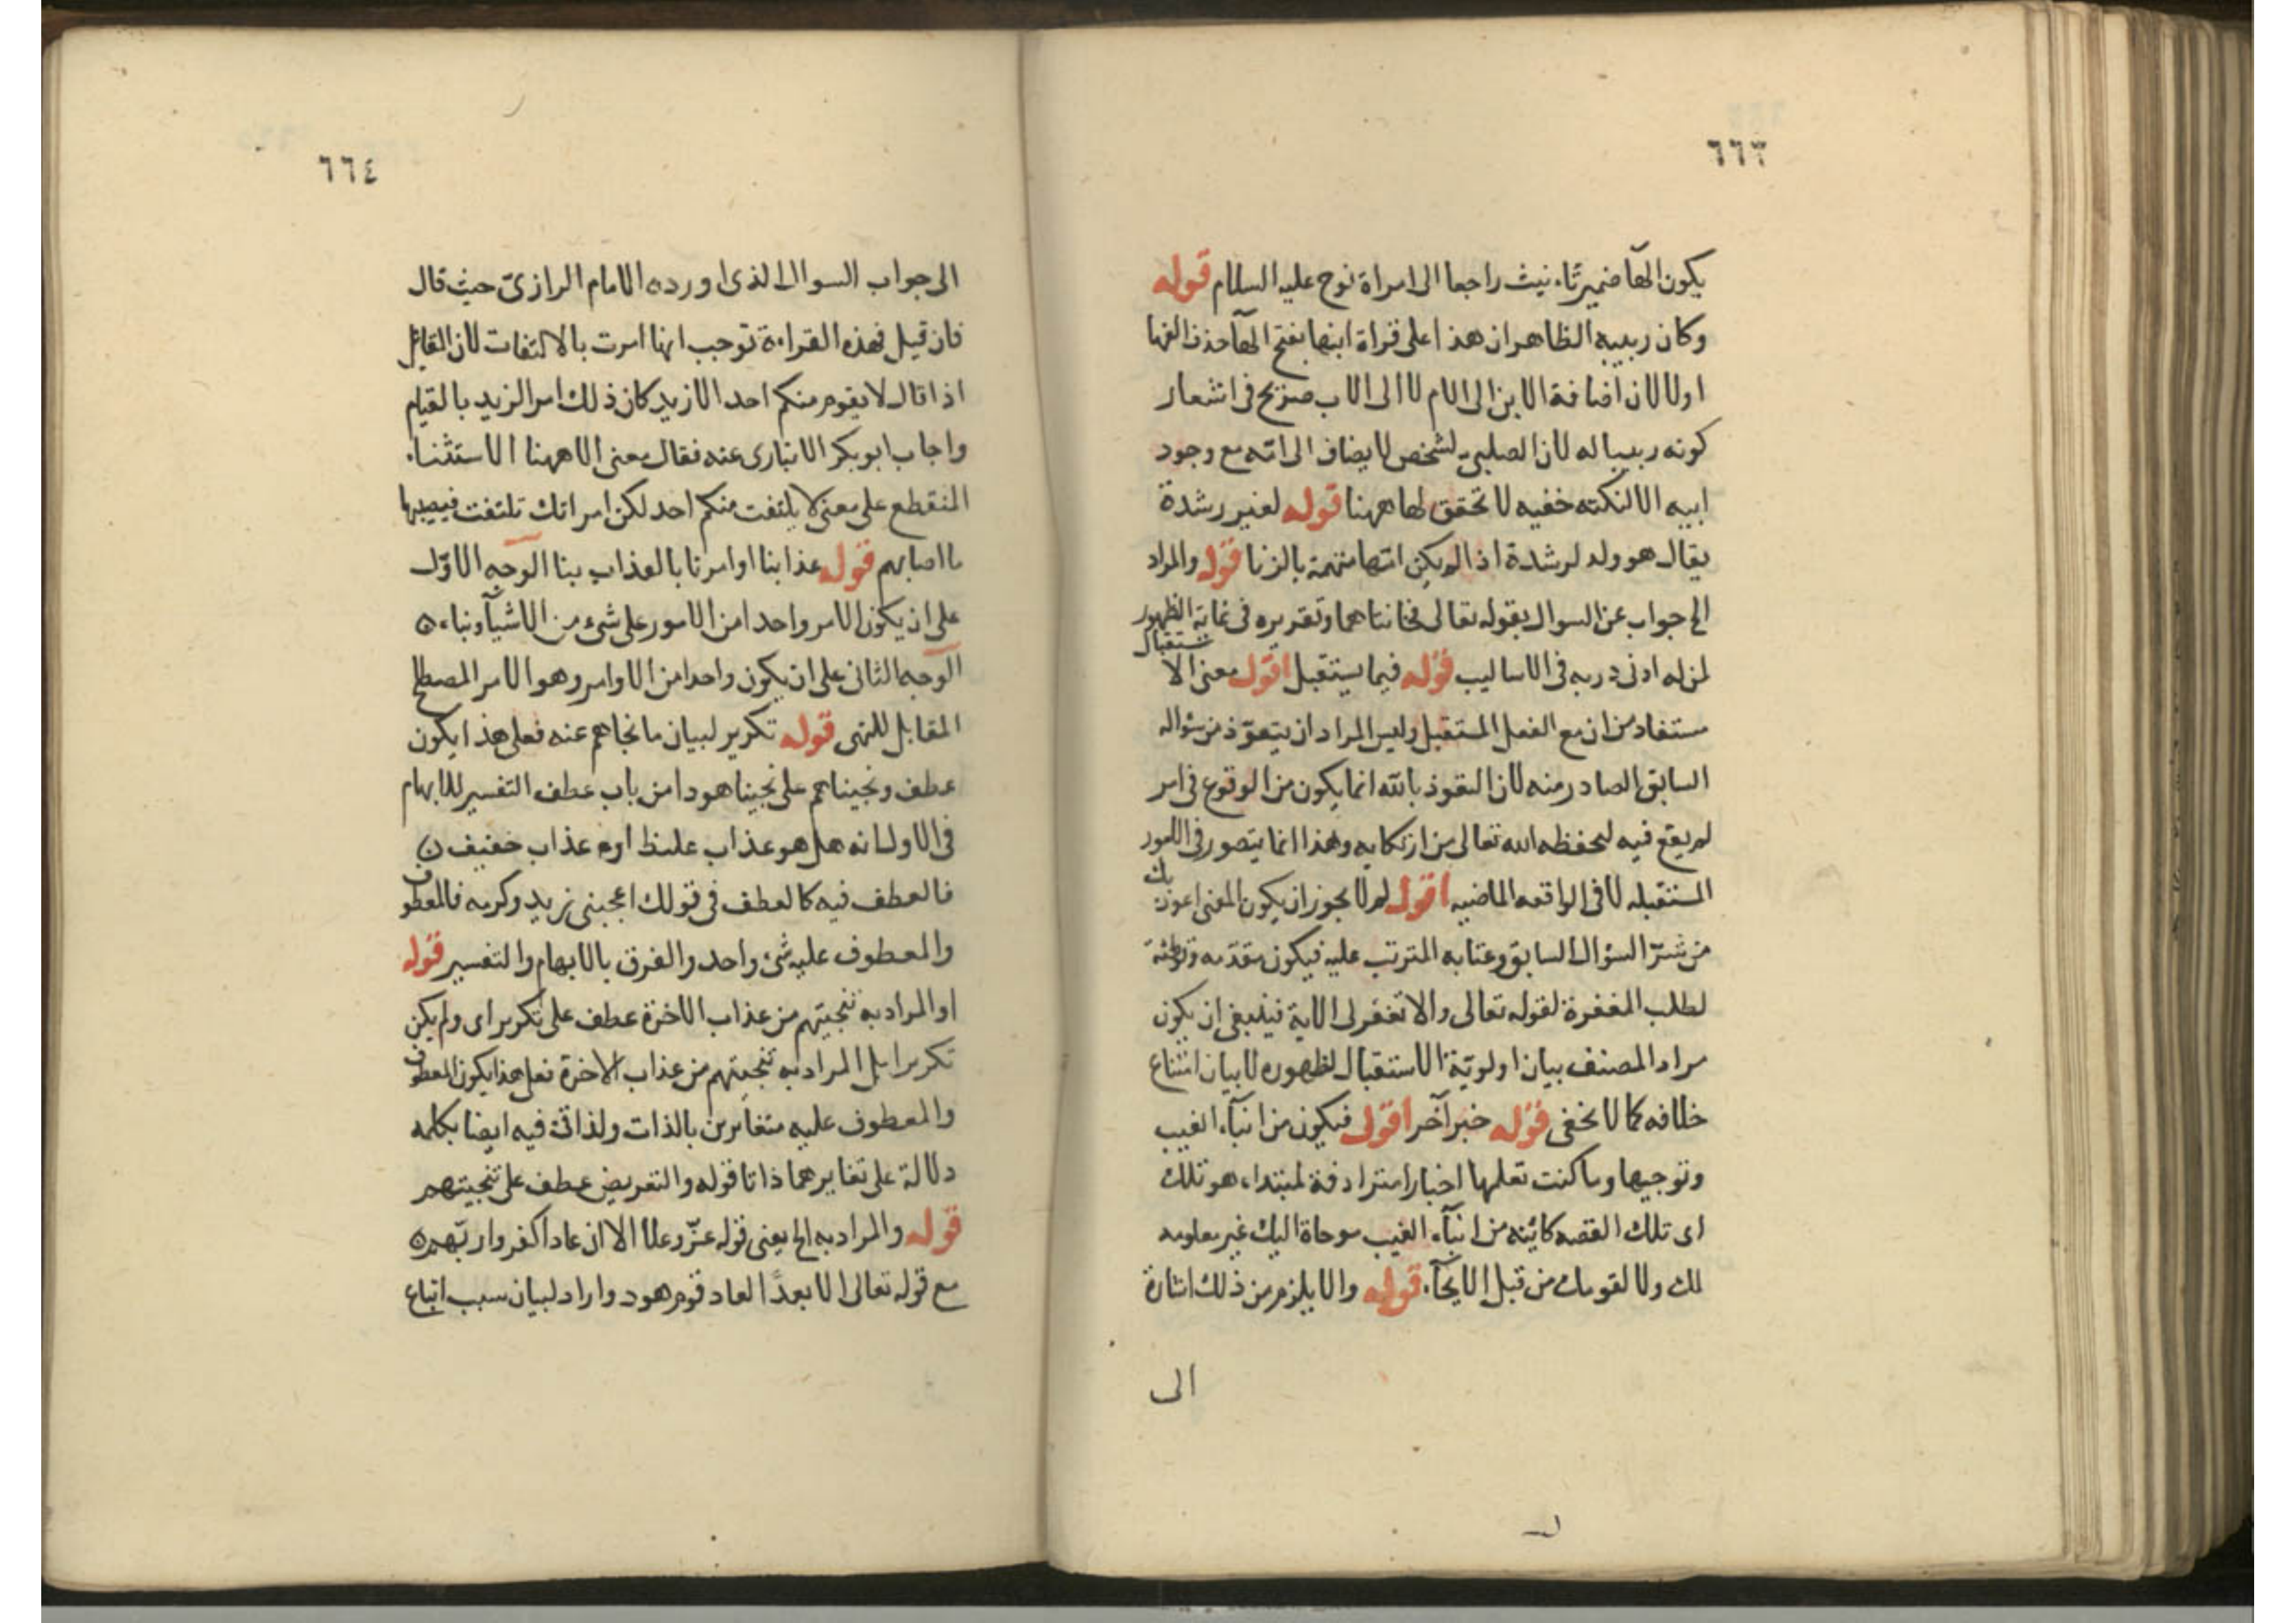 ٦٦٣
يكون الهآ ضمير تأنيث راجعا الى امراة نوح عليه السلام قوله
وكان ربيبه الظاهر ان هذا على قراة ابنها بفتح الهآ حذف الفها
اولا لان اضافة الابن الى الام لا الى الاب صريح في اشعار
كونه ربيبا له لان الصلبي لشخص لا يضاف الى امّه مع وجود
ابيه الا لنكته خفيه لا تحقق لها ههنا قوله لغير رشدة
يقال هو ولد لرشدة اذا لم يكن امّها متهمة بالزنا قوله والمراد
الخ جواب عن السوال بقوله تعالى فخانتاهما وتقريره فى غاية الظهور
لمن له ادنى دربه فى الاساليب قوله فيما يستقبل اقول معنى الاستقبال
مستفاد من ان مع الفعل المستقبل وليس المراد ان يتعوّذ من سؤاله
السابق الصادر منه لان التعوذ بالله انما يكون من الوقوع فى امر
لم يقع فيه ليحفظه الله تعالى من ارتكابه وهذا انما يتصور فى الامور
المستقبله لا فى الواقعه الماضيه اقول لم لا يجوز ان يكون المعنى اعوذ بك
من شرّ السؤال السابق وعتابه المترتب عليه فيكون مقدّمه وتوطئة
لطلب المغفرة لقوله تعالى والا تغفر لى الاية فينبغى ان يكون
مراد المصنف بيان اولويّة الاستقبال لظهوره لا بيان امتناع
خلافه كما لا يخفى قوله خبر آخر اقول فيكون من انبآء الغيب
ونوحيها وما كنت تعلمها اخبارا مترادفة لمبتداء هو تلك
اى تلك القصه كائنه من انبآء الغيب موحاة اليك غير معلومه
لك ولا لقومك من قبل الايحآء قوله والا يلزم من ذلك اشارة
الى
٦٦٤
الى جواب السوال الذى اورده الامام الرازىّ حيث قال
فان قيل فهذه القراءة توجب انها امرت بالالتفات لان القائل
اذا قال لا يقوم منكم احد الا زيد كان ذلك امر الزيد بالقيام
واجاب ابو بكر الانبارى عنه فقال معنى الا ههنا الاستثناء
المنقطع على معنى لا يلتفت منكم احد لكن امراتك تلتفت فيصيبها
ما اصابهم قوله عذابنا او امرنا بالعذاب بنا الوجه الاوّل
على ان يكون الامر واحدا من الامور على شىء من الاشيآ وبناء
الوجه الثانى على ان يكون واحدا من الاوامر وهو الامر المصطلح
المقابل للنهى قوله تكرير لبيان ما نجاهم عنه فعلى هذا يكون
عطف ونجيناهم على نجينا هودا من باب عطف التفسير للابهام
فى الاول انه هل هو عذاب غليظ اوم عذاب خفيف
فالعطف فيه كالعطف فى قولك اعجبنى زيد وكرمه فالمعطوف
والمعطوف عليه شئ واحد والفرق بالابهام والتفسير قوله
او المراد به تنجيتهم من عذاب الاخرة عطف على تكرير اى ولم يكن
تكريرا بل المراد به تنجيتهم من عذاب الاخرة فعلى هذا يكون المعطوف
والمعطوف عليه متغايرين بالذات ولذا فيه ايضا بكلمه
دلالة على تغايرهما ذاتا قوله والتعريض عطف على تنجيتهم
قوله والمراد به الخ يعنى قوله عزّ وعلا الا ان عادا كفروا ربّهم
مع قوله تعالى الا بعدًا لعاد قوم هود واراد لبيان سبب اتباع